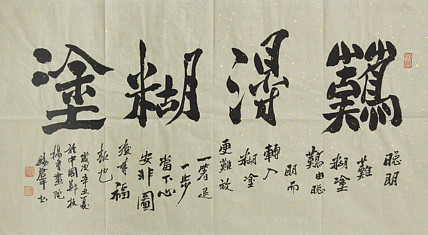 難得糊塗
聰明
難
糊塗
難由聰
明而
轉入
糊塗
更難放
一著退
一步
當下心
安非圖
後來福
報也
歲次辛丑夏
於中國鄭板
橋書畫院
書